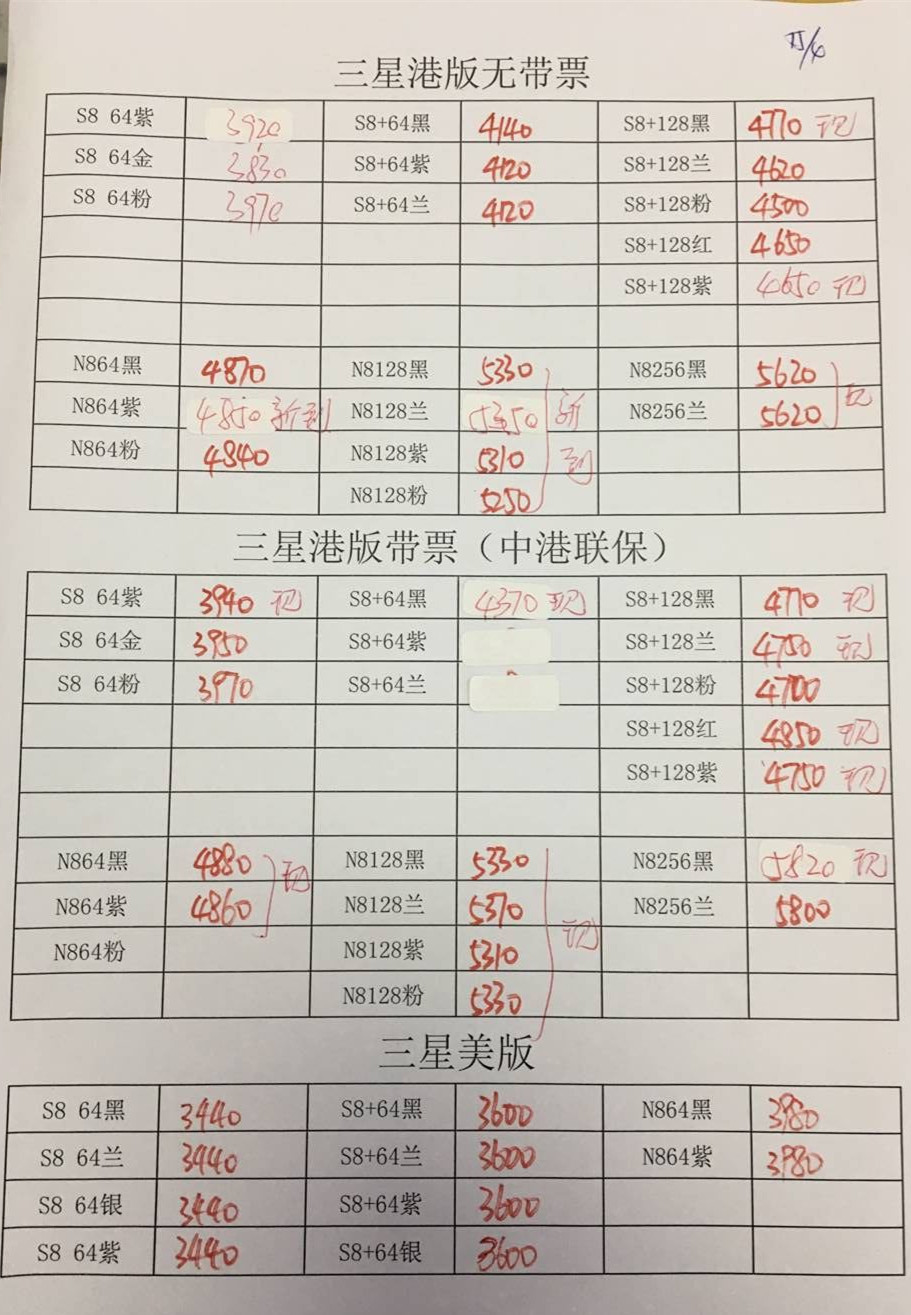 三星港版无带票
S8 64紫 3920 S8+64黑 4140 S8+128黑 4770 现
S8 64金 3830 S8+64紫 4120 S8+128兰 4620
S8 64粉 3970 S8+64兰 4120 S8+128粉 4500
S8+128红 4650
S8+128紫 4650 现
N864黑 4870 N8128黑 5330 N8256黑 5620
N864紫 4850 新到 N8128兰 5350 新到 N8256兰 5620 现
N864粉 4840 N8128紫 5310
N8128粉 5250
三星港版带票（中港联保）
S8 64紫 3940 现 S8+64黑 4370 现 S8+128黑 4770 现
S8 64金 3950 S8+64紫 S8+128兰 4750 现
S8 64粉 3970 S8+64兰 S8+128粉 4700
S8+128红 4850 现
S8+128紫 4750 现
N864黑 4880 现 N8128黑 5330 N8256黑 5820 现
N864紫 4860 N8128兰 5370 现 N8256兰 5800
N864粉 N8128紫 5310
N8128粉 5330
三星美版
S8 64黑 3440 S8+64黑 3600 N864黑 3980
S8 64兰 3440 S8+64兰 3600 N864紫 3980
S8 64银 3440 S8+64紫 3600
S8 64紫 3440 S8+64银 3600